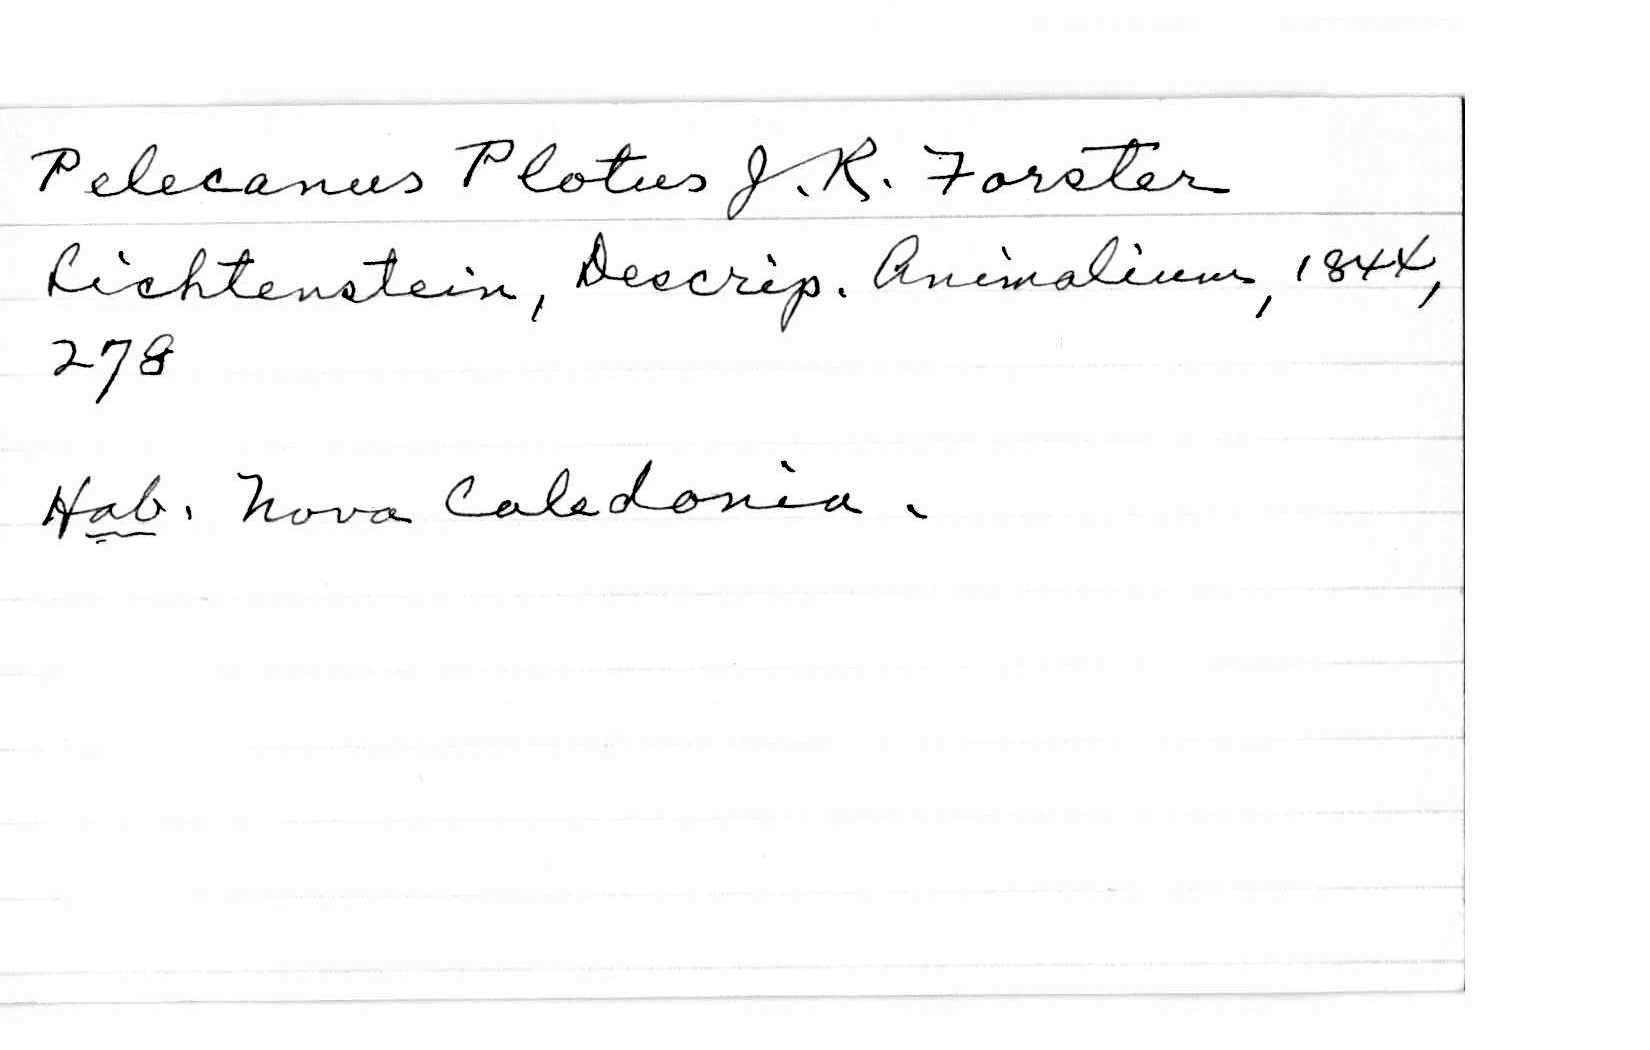 Pelecanus Plotus J. R. Forster
Lichtenstein, Descrip. Animalium, 1844,
278
Hab. Nova Caledonia.